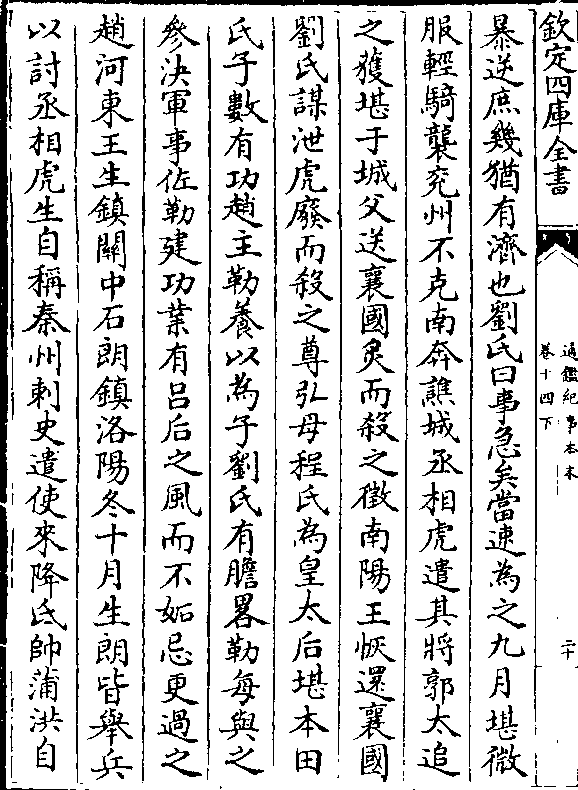 欽定四庫全書
通鑑紀事本末
卷十四下
二十
暴逆庶幾猶有濟也劉氏曰事急矣當速為之九月堪微
服輕騎襲兖州不克南奔譙城丞相虎遣其將郭太追
之獲堪于城父送襄國炙而殺之徵南陽王恢還襄國
劉氏謀泄虎廢而殺之尊弘母程氏為皇太后堪本田
氏子數有功趙主勒養以為子劉氏有膽畧勒每與之
參決軍事佐勒建功業有吕后之風而不妬忌更過之
趙河東王生鎮關中石朗鎮洛陽冬十月生朗皆舉兵
以討丞相虎生自稱秦州刺史遣使來降氐帥蒲洪自